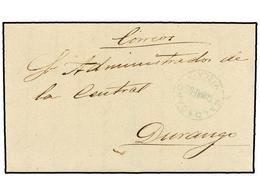 Correos
Sr Administrador de
la Central
Durango